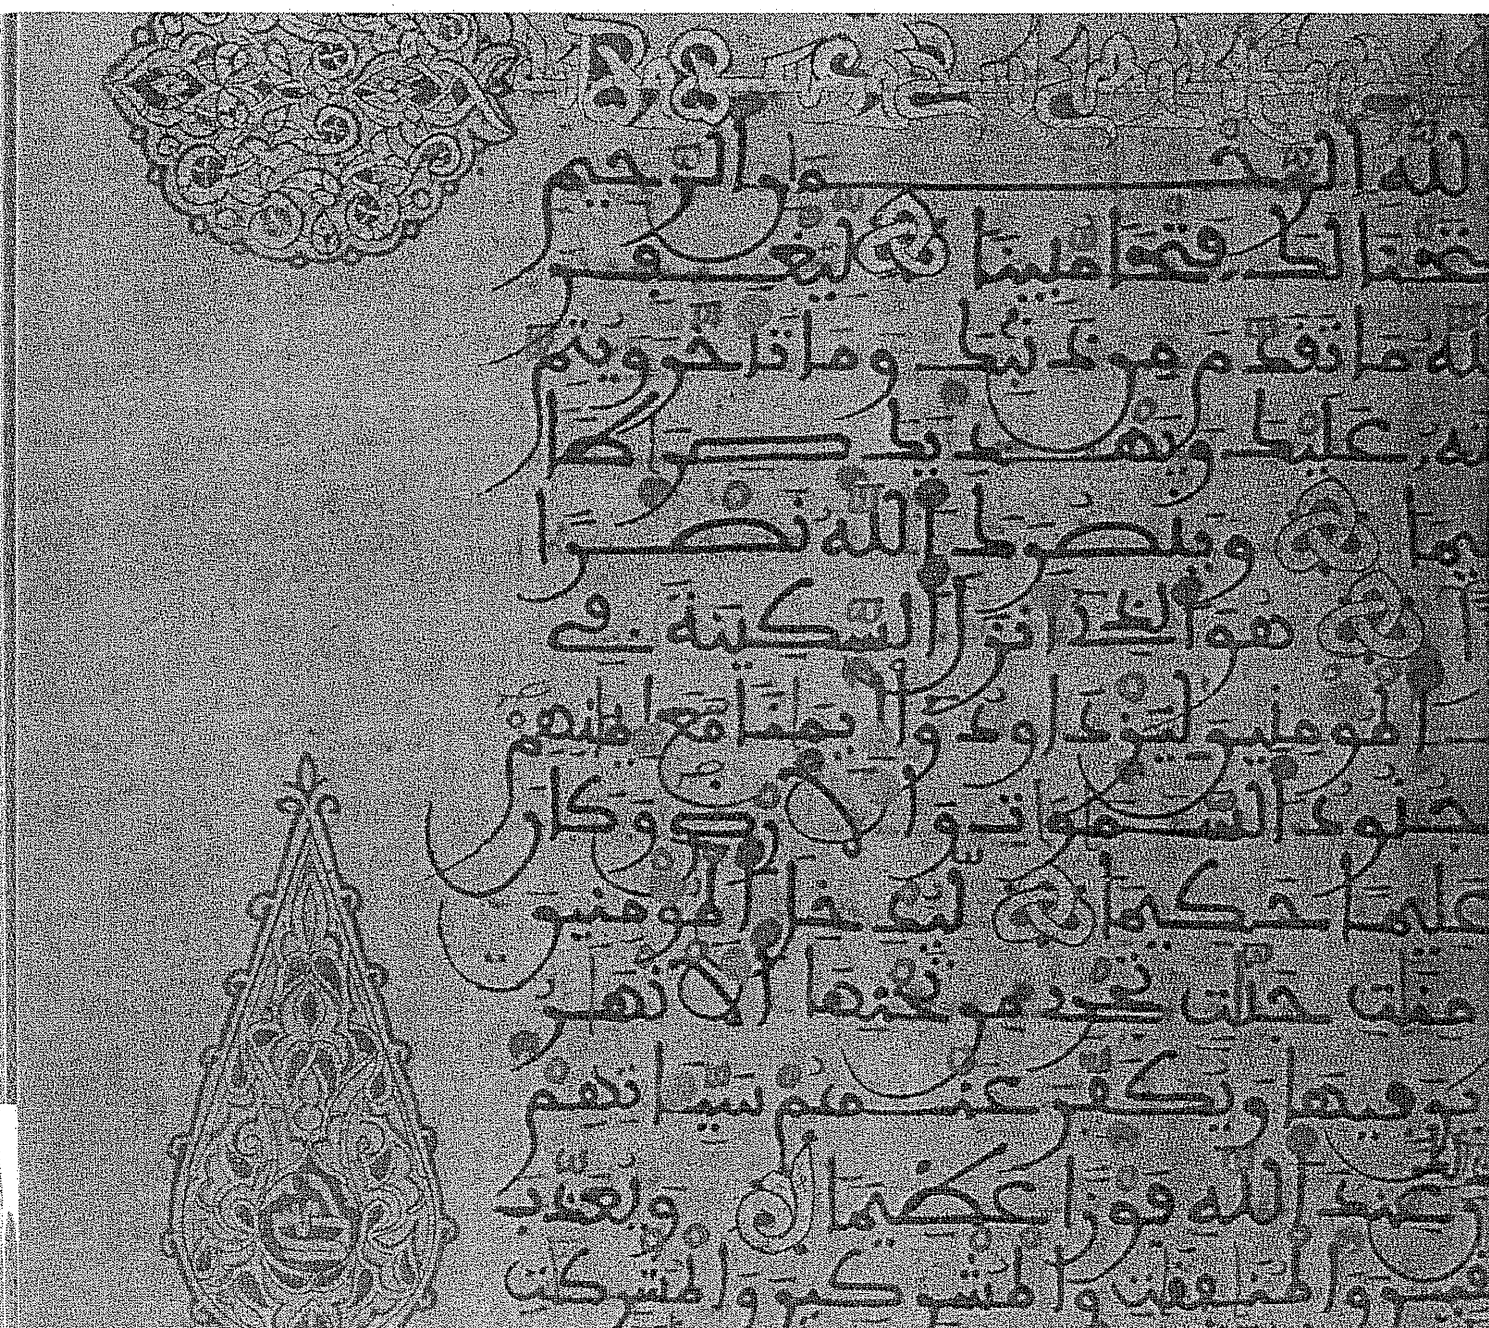 لله الرحمن الرحيم
تحنا لك فتحا مبينا ليغفر
لله ما تقدم من ذنبك وما تاخر ويتم
ته عليك ويهديك صراطا
يما وينصرك الله نصرا
ا هو الذي انزل السكينة في
المومنين ليزدادوا ايمانا مع ايمنهم
جنود السموات والارض وكان
عليما حكيما ليدخل المومنين
منت جنت تجري من تحتها الانهر
ين فيها ويكفر عنهم سياتهم
عند الله فوزا عظيما ويعذب
فقين والمنفقت والمشركين والمشركت